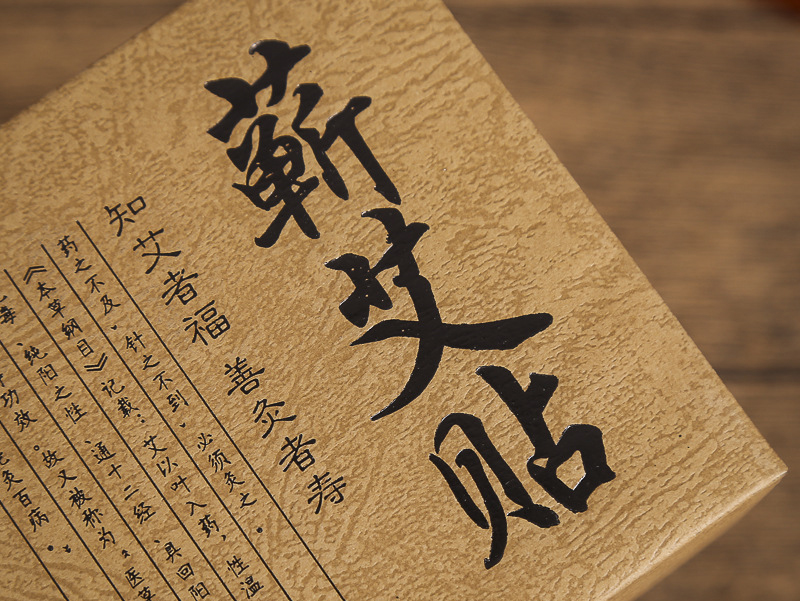 蕲艾贴
知艾者福 善灸者寿
药之不及，针之不到，必须灸之。
《本草纲目》记载：艾以叶入药，性温
毒、纯阳之性、通十二经、具回阳
功效。故又被称为“医草
灸百病。”